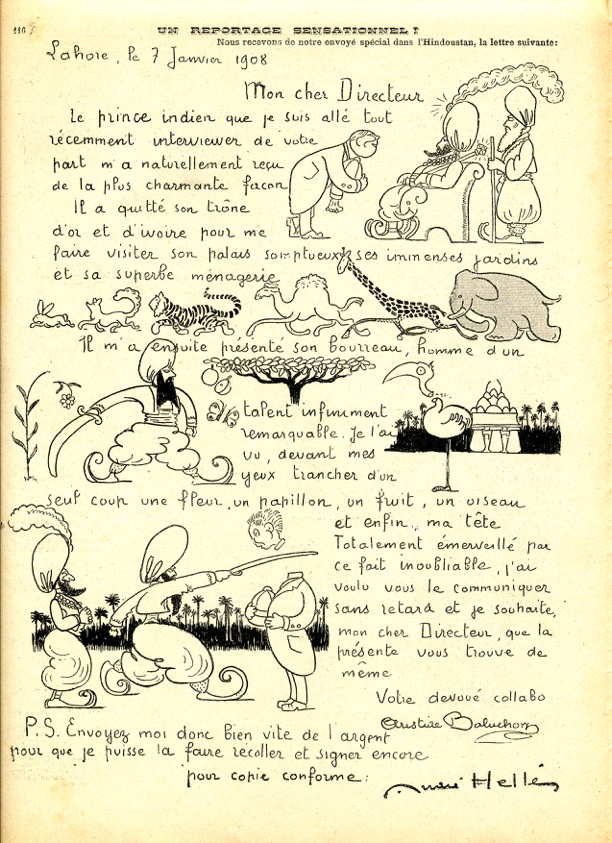 116
UN REPORTAGE SENSATIONNEL !
Nous recevons de notre envoyé spécial dans l'Hindoustan, la lettre suivante:
Lahore, le 7 Janvier 1908
Mon cher Directeur
Le prince indien que je suis allé tout
récemment interviewer de votre
part m'a naturellement reçu
de la plus charmante façon
Il a quitté son trône
d'or et d'ivoire pour me
faire visiter son palais somptueux, ses immenses jardins
et sa superbe ménagerie
Il m'a ensuite présenté son bourreau, homme d'un
talent infiniment
remarquable. Je l'ai
vu, devant mes
yeux trancher d'un
seul coup une fleur, un papillon, un fruit, un oiseau
et enfin, ma tête
Totalement émerveillé par
ce fait inoubliable, j'ai
voulu vous le communiquer
sans retard et je souhaite,
mon cher Directeur, que la
présente vous trouve de
même
Votre dévoué collabo
Aristide Baluchon
P.S. Envoyez moi donc bien vite de l'argent
pour que je puisse la faire recoller et signer encore
pour copie conforme:
André Hellé